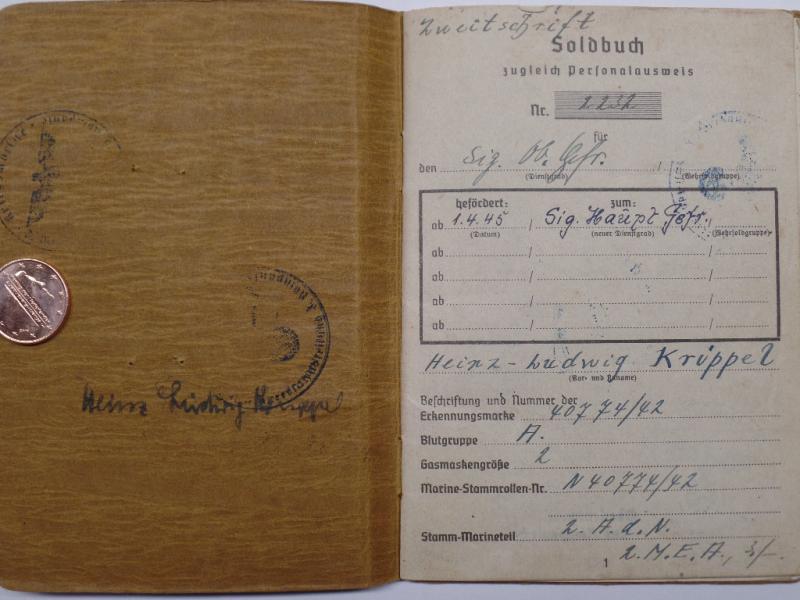 Heinz Ludwig
Zweitschrift
Soldbuch
zugleich Personalausweis
Nr. 2232
für
den Sig. Ob. Gefr. /
(Dienstgrad) (Wehrsoldgruppe)
befördert: zum:
ab 1.4.45 / Sig. Haupt Gefr. /
(Datum) (neuer Dienstgrad) (Wehrsoldgruppe)
ab / /
ab / /
ab / /
ab / /
Heinz-Ludwig Krüppel
(Vor- und Zuname)
Beschriftung und Nummer der
Erkennungsmarke 40774/42
Blutgruppe A.
Gasmaskengröße 2
Marine-Stammrollen-Nr. N 40774/42
Stamm-Marineteil 2. A. d. N.
2. M. E. A.,
1